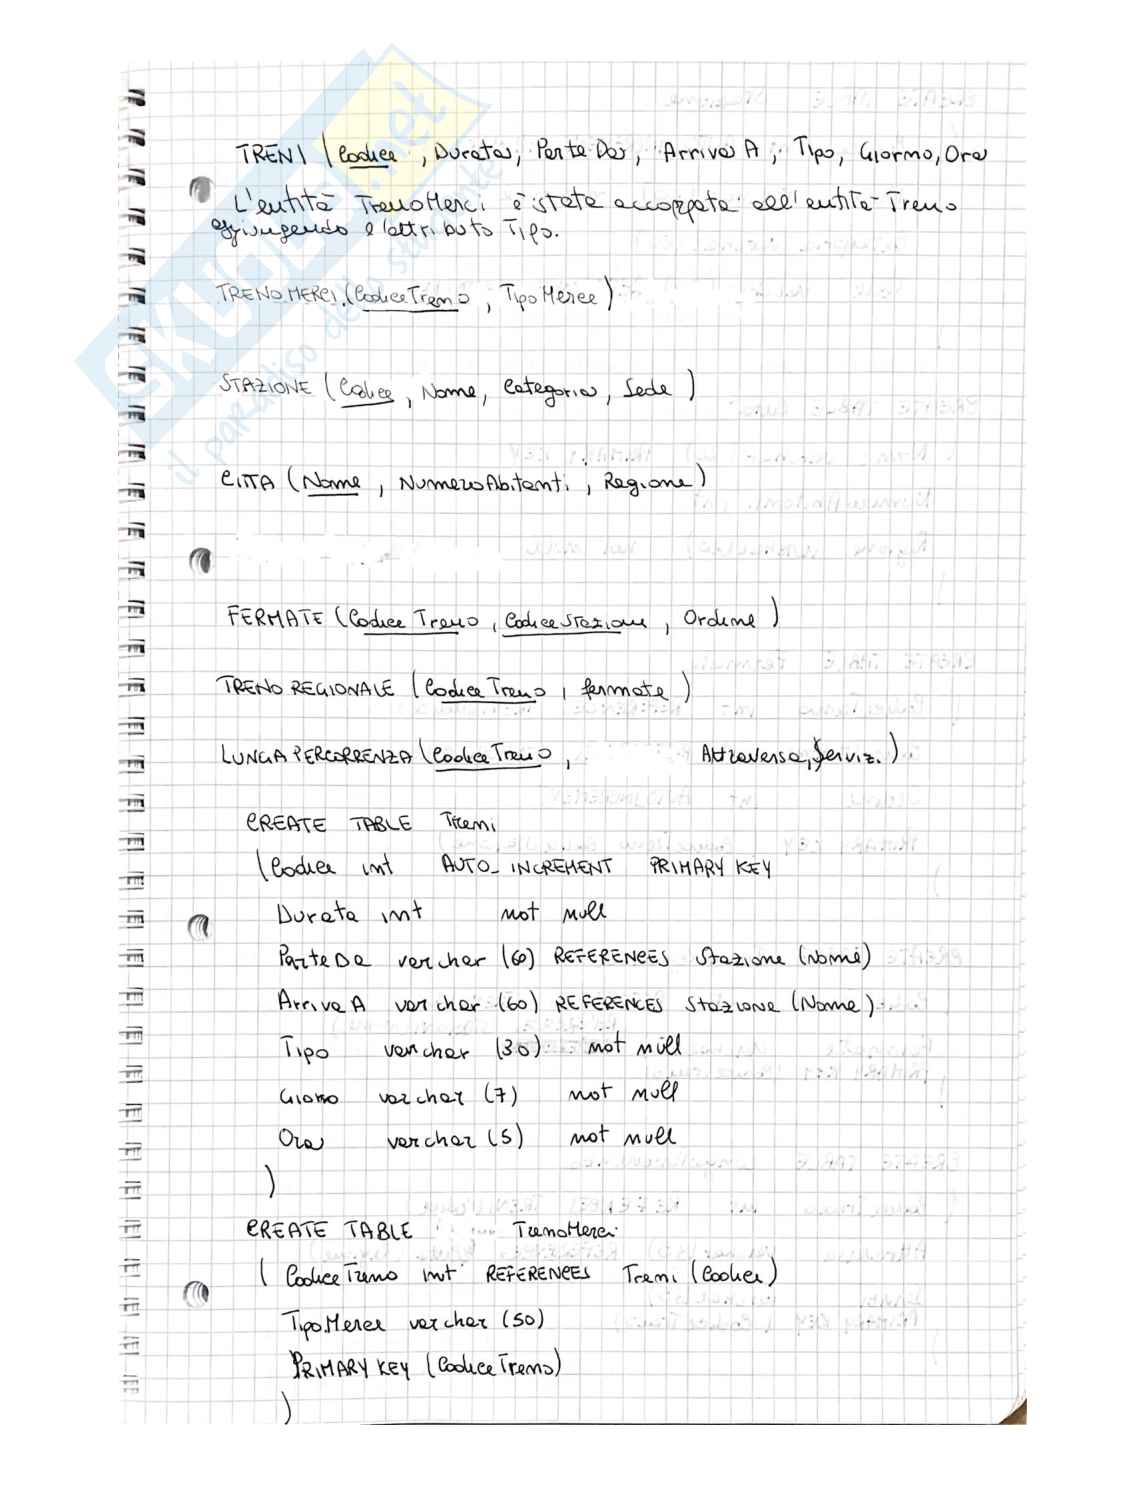 TRENI (Codice, Durata, Parte Da, Arriva A, Tipo, Giorno, Ora
L'entità TrenoMerci è stata accoppata all'entità Treno
aggiungendo l'attributo Tipo.
TRENO MERCI (CodiceTreno, TipoMerce)
STAZIONE (Codice, Nome, Categoria, Sede)
CITTA (Nome, NumeroAbitanti, Regione)
FERMATE (Codice Treno, CodiceStazione, Ordine)
TRENO REGIONALE (Codice Treno, fermate)
LUNGA PERCORRENZA (CodiceTreno, Attraversa, Serviz.)
CREATE TABLE Treni
(Codice int AUTO_INCREMENT PRIMARY KEY
Durata int not null
ParteDa varchar (60) REFERENCES Stazione (Nome)
Arriva A varchar (60) REFERENCES Stazione (Nome)
Tipo varchar (30) not null
Giorno varchar (7) not null
Ora varchar (5) not null
)
CREATE TABLE TrenoMerci
( CodiceTreno int REFERENCES Treni (Codice)
TipoMerce varchar (50)
PRIMARY KEY (CodiceTreno)
)
SKUOLA.net
il paradiso dello studente